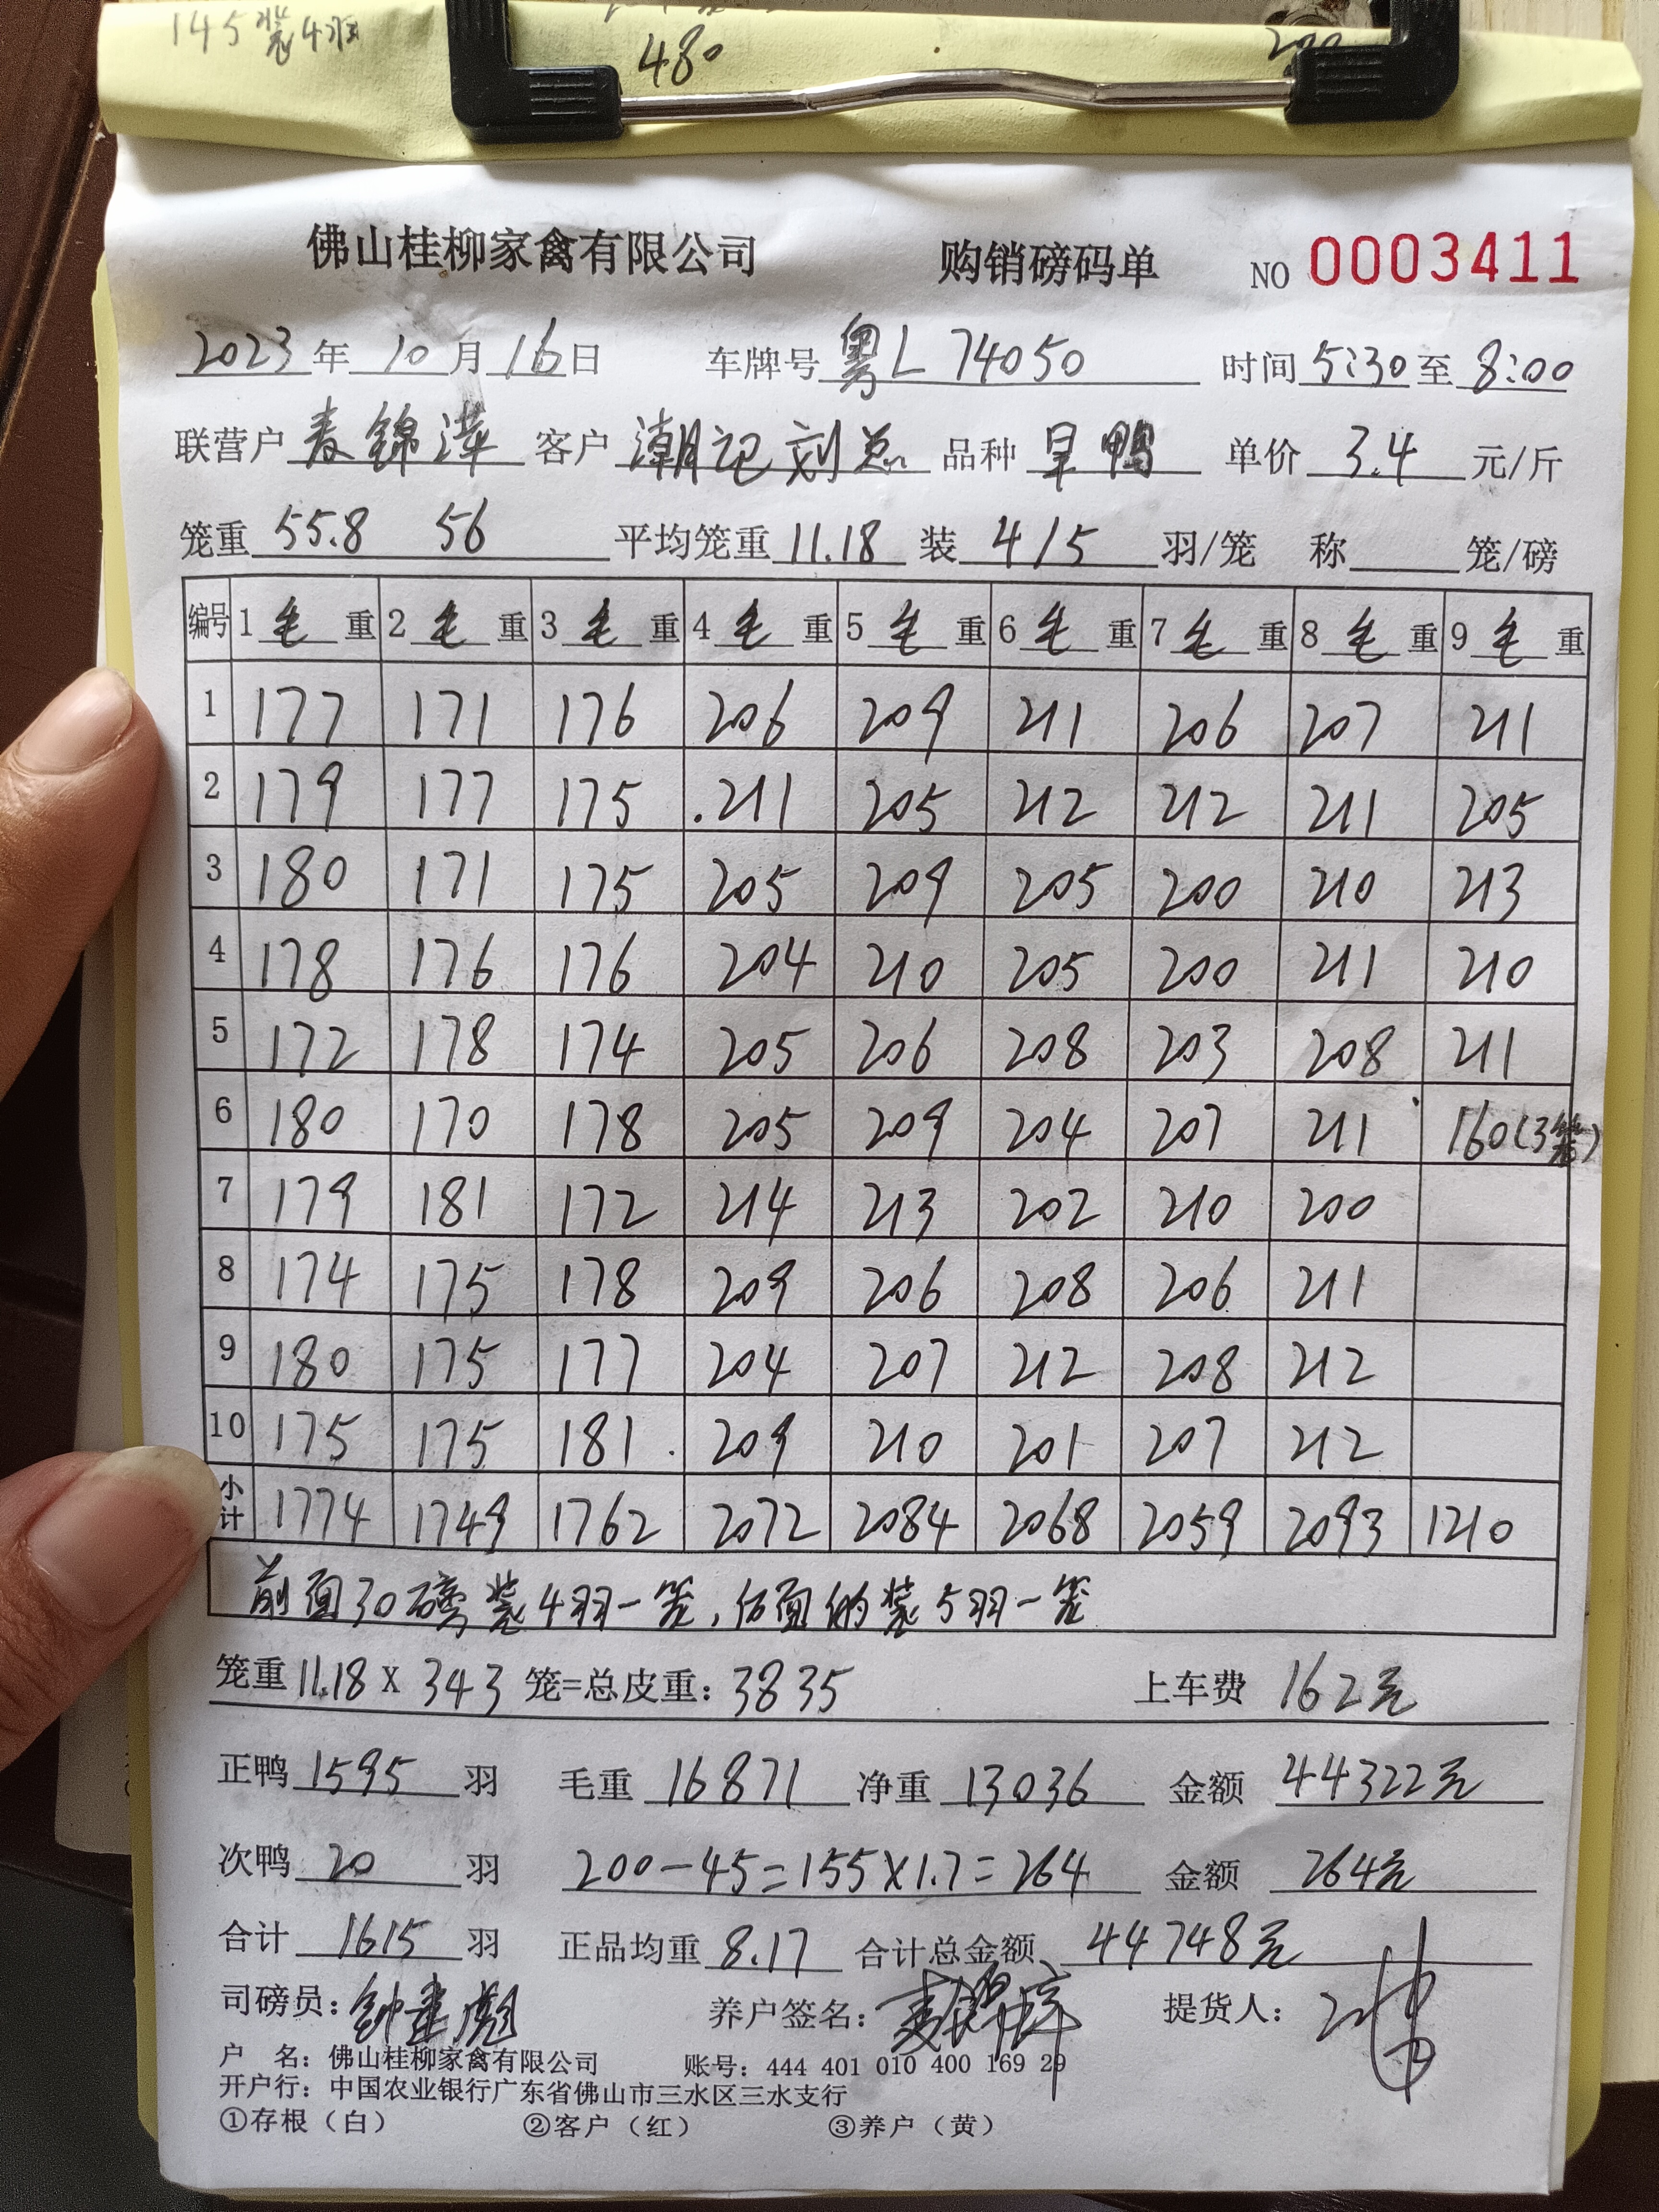 145装4羽
480
200
佛山桂柳家禽有限公司 购销磅码单 NO 0003411
2023年10月16日 车牌号 粤L 74050 时间 5:30 至 8:00
联营户 麦锦萍 客户 潮记刘总 品种 旱鸭 单价 3.4 元/斤
笼重 55.8 56 平均笼重 11.18 装 4/5 羽/笼 称 笼/磅
编号 1毛重 2毛重 3毛重 4毛重 5毛重 6毛重 7毛重 8毛重 9毛重
1 177 171 176 206 209 211 206 207 211
2 179 177 175 .211 205 212 212 211 205
3 180 171 175 205 209 205 200 210 213
4 178 176 176 204 210 205 200 211 210
5 172 178 174 205 206 208 203 208 211
6 180 170 178 205 209 204 207 211 160(3笼)
7 179 181 172 214 213 202 210 200
8 174 175 178 209 206 208 206 211
9 180 175 177 204 207 212 208 212
10 175 175 181 209 210 201 207 212
小计 1774 1749 1762 2072 2084 2068 2059 2093 1210
前面30磅装4羽一笼,后面的装5羽一笼
笼重 11.18 X 343 笼=总皮重: 3835 上车费 162元
正鸭 1595 羽 毛重 16871 净重 13036 金额 44322元
次鸭 20 羽 200-45=155×1.7=264 金额 264元
合计 1615 羽 正品均重 8.17 合计总金额 44748元
司磅员: 养户签名: 麦锦萍 提货人:
户 名: 佛山桂柳家禽有限公司 账号: 444 401 010 400 169 29
开户行: 中国农业银行广东省佛山市三水区三水支行
①存根（白） ②客户（红） ③养户（黄）